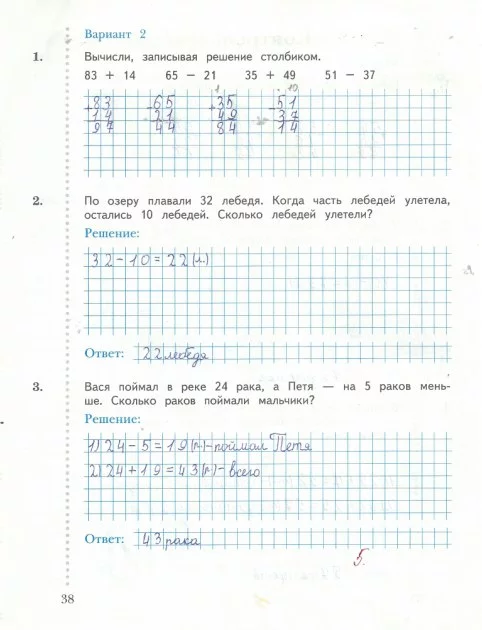 Вариант 2
1. Вычисли, записывая решение столбиком.
83 + 14 65 − 21 35 + 49 51 − 37
1 . 10
+83 −65 +35 −51
14 21 49 37
97 44 84 14
2. По озеру плавали 32 лебедя. Когда часть лебедей улетела,
остались 10 лебедей. Сколько лебедей улетели?
Решение:
32−10=22(л.)
Ответ: 22 лебедя
3. Вася поймал в реке 24 рака, а Петя — на 5 раков мень-
ше. Сколько раков поймали мальчики?
Решение:
1) 24−5=19(р.)-поймал Петя
2) 24+19=43(р.)-всего
Ответ: 43 рака
5.
38